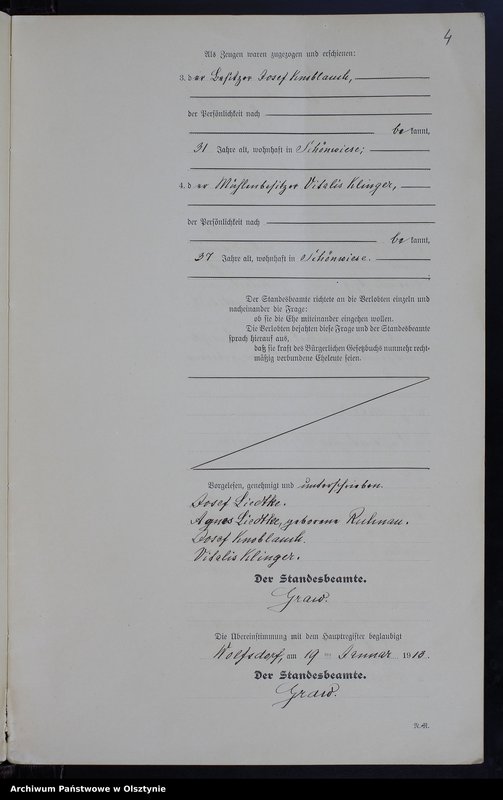 4
Als Zeugen waren zugezogen und erschienen:
3. der Besitzer Josef Knoblauch,
der Persönlichkeit nach
be kannt,
31 Jahre alt, wohnhaft in Schönwiese;
4. der Mühlenbesitzer Vitalis Klinger,
der Persönlichkeit nach
be kannt,
37 Jahre alt, wohnhaft in Schönwiese.
Der Standesbeamte richtete an die Verlobten einzeln und
nacheinander die Frage:
ob sie die Ehe miteinander eingehen wollen.
Die Verlobten bejahten diese Frage und der Standesbeamte
sprach hierauf aus,
daß sie kraft des Bürgerlichen Gesetzbuchs nunmehr recht-
mäßig verbundene Eheleute seien.
Vorgelesen, genehmigt und unterschrieben.
Josef Liedtke.
Agnes Liedtke, geborene Ruhnau.
Josef Knoblauch.
Vitalis Klinger.
Der Standesbeamte.
Graw.
Die Übereinstimmung mit dem Hauptregister beglaubigt
Wolfsdorf, am 19 ten Januar 1913.
Der Standesbeamte.
Graw.
Archiwum Państwowe w Olsztynie